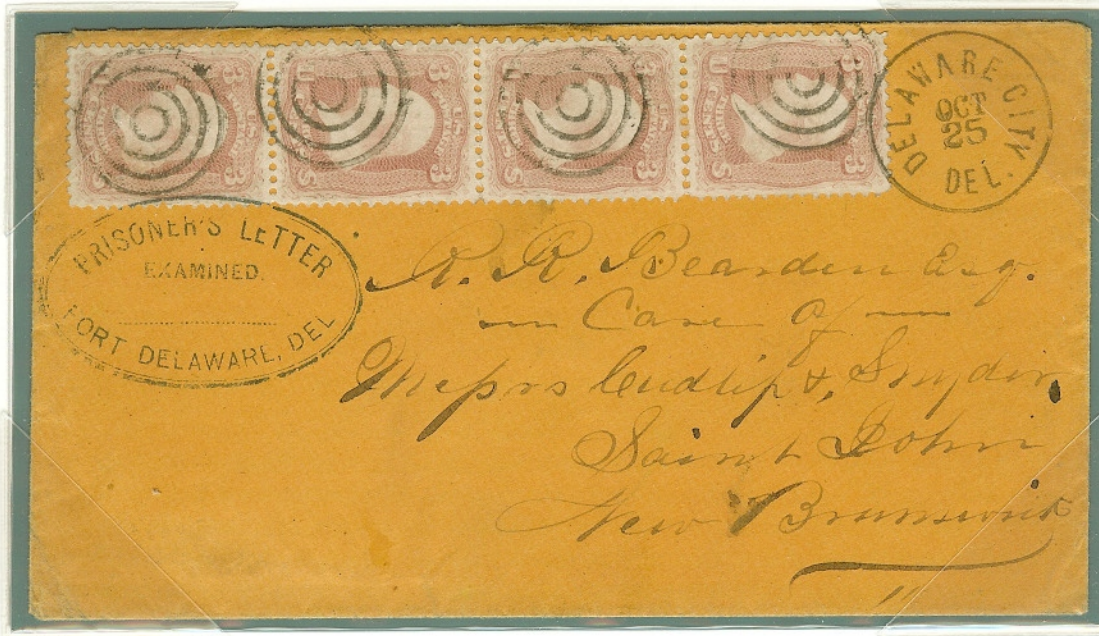 DELAWARE CITY
OCT
25
DEL.
PRISONER'S LETTER
EXAMINED.
FORT DELAWARE, DEL
R. R. Bearden Esq.
— Care of —
Messrs Cudlip & Snyder
Saint John
New Brunswick